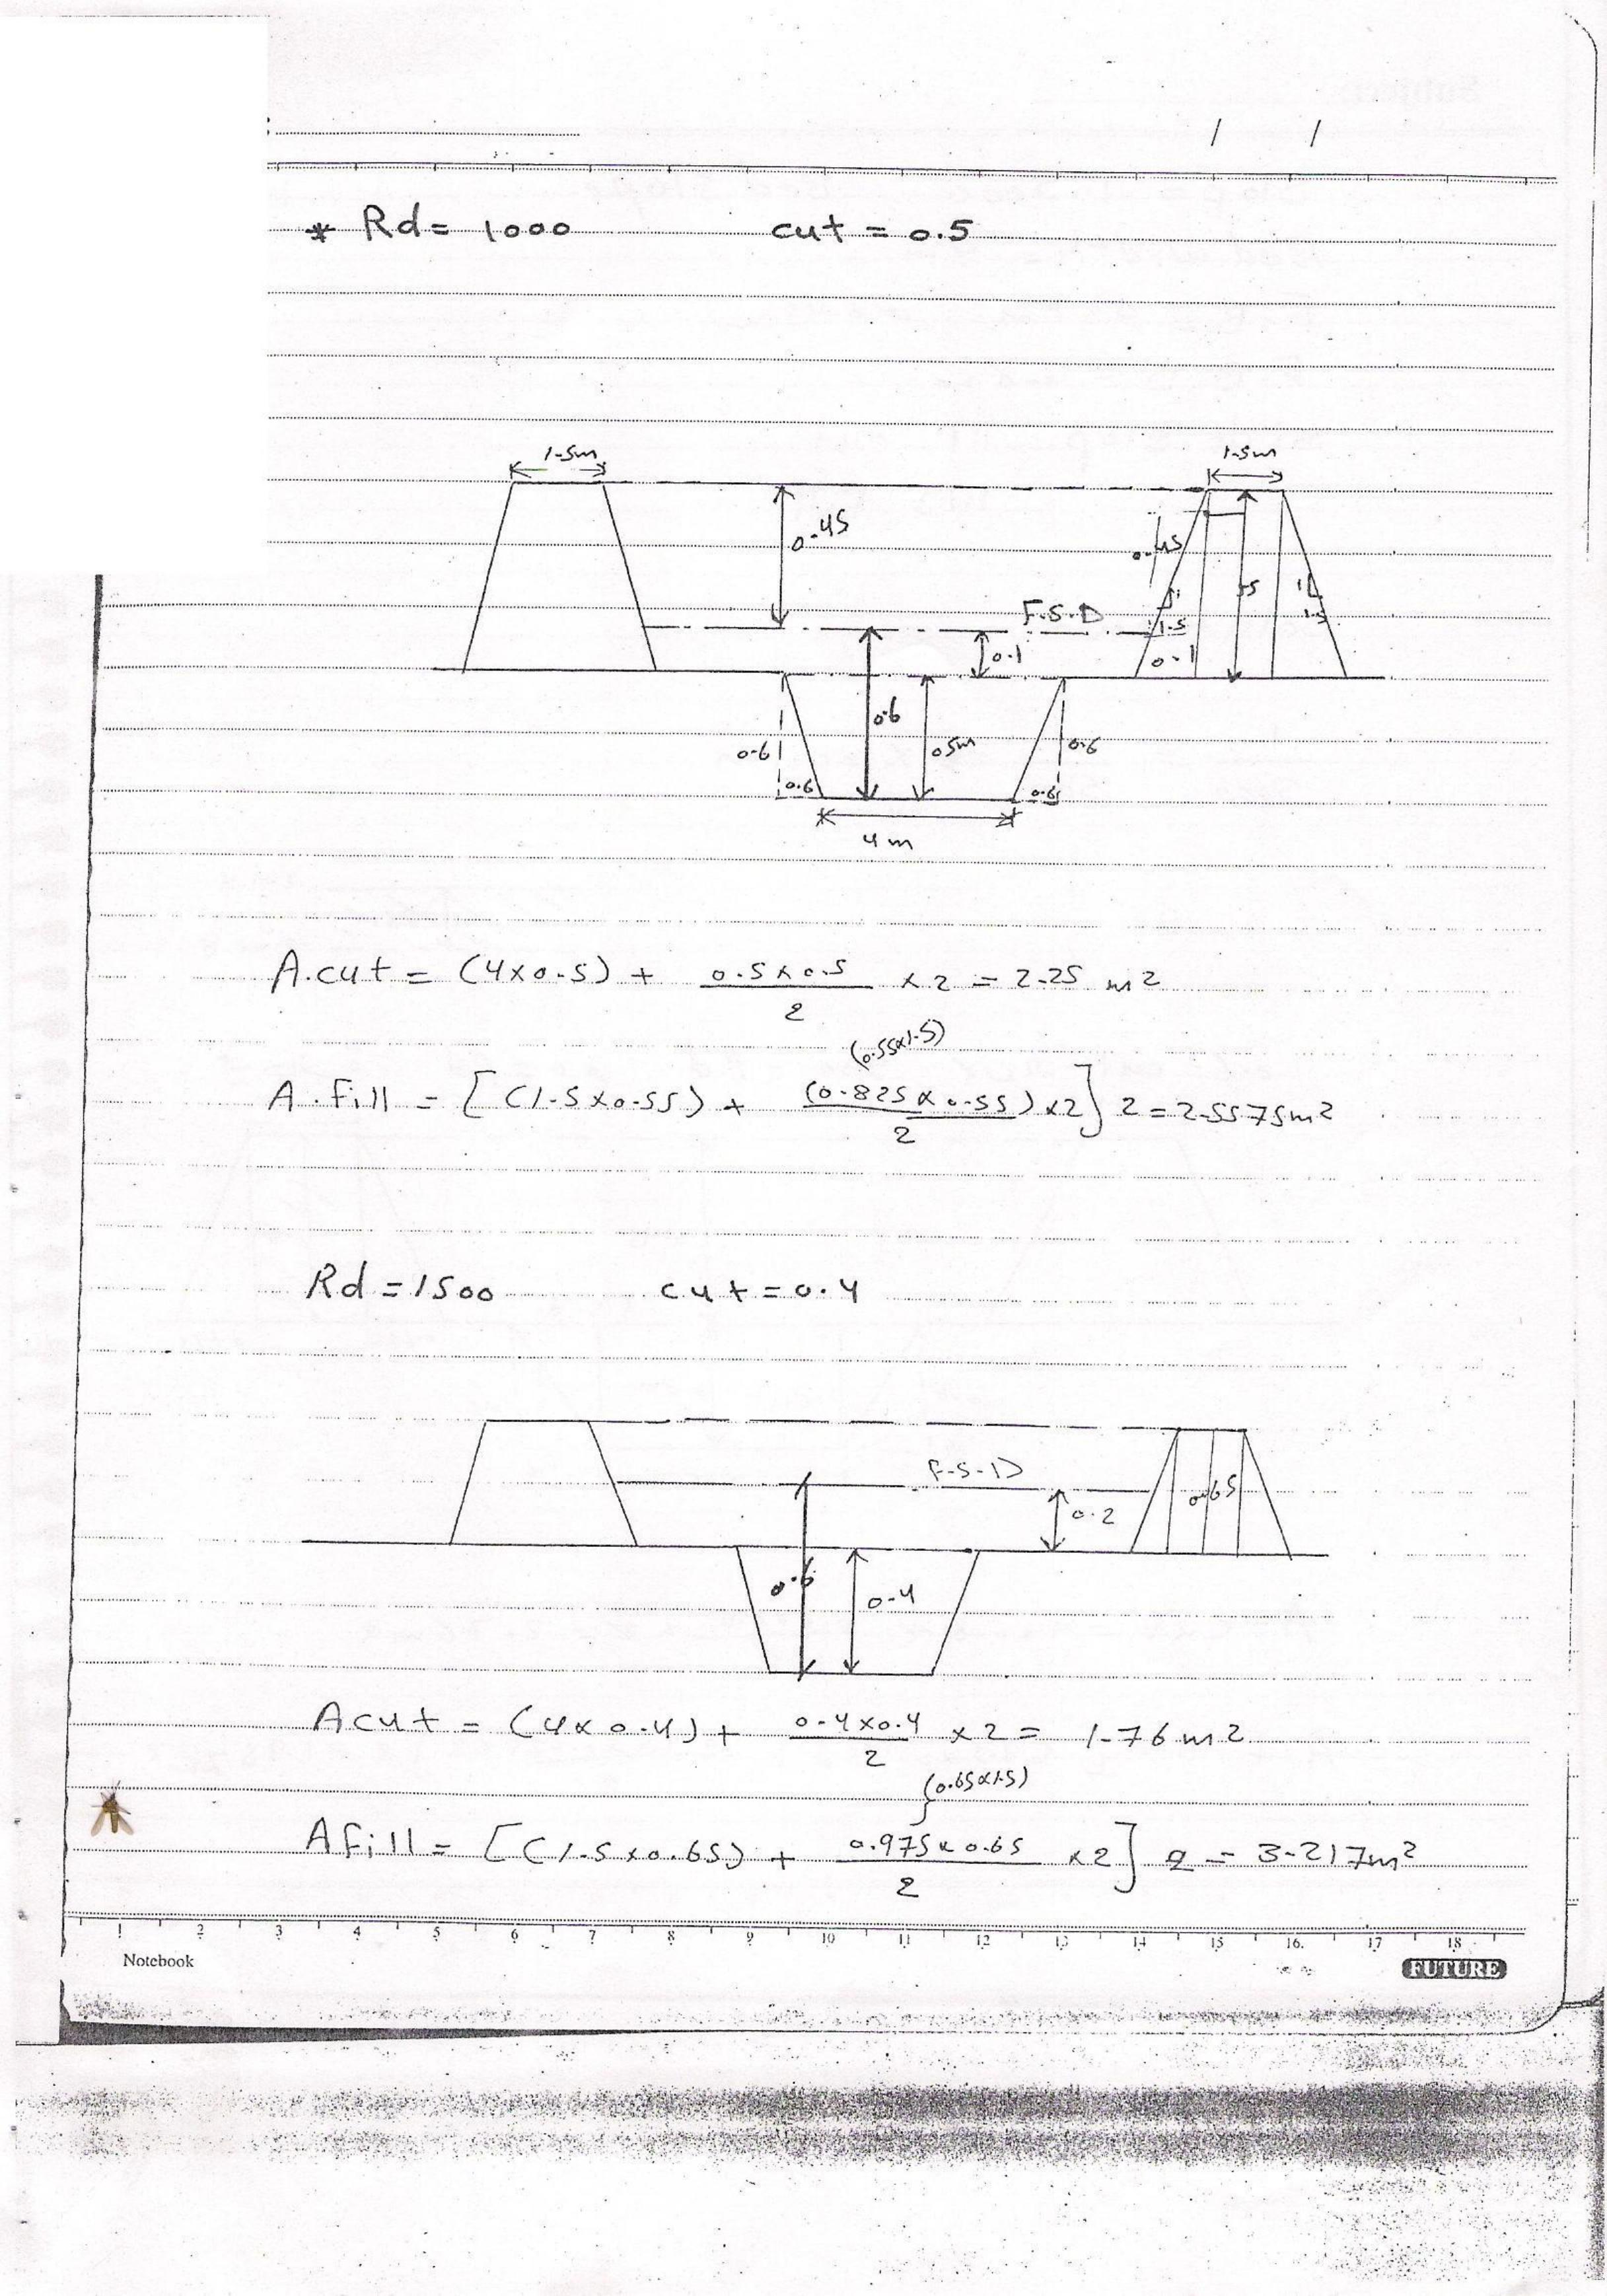 / /
* Rd = 1000 cut = 0.5
1.5m 1.5m
0.45 0.45
F.S.D 1 1
1.5 1.5
0.1 0.1
0.6 0.5m
0.6 0.6
0.6 0.6
4 m
A.cut = (4×0.5) + 0.5×0.5/2 ×2 = 2.25 m2
(0.55×1.5)
A.fill = [(1.5×0.55) + (0.825×0.55)/2 ×2] 2 = 2.5575m2
Rd = 1500 cut = 0.4
F.S.D
0.2 0.65
0.6 0.4
A cut = (4×0.4) + 0.4×0.4/2 ×2 = 1.76 m2
(0.65×1.5)
A fill = [(1.5×0.65) + 0.975×0.65/2 ×2] 2 = 3.217m2
1 2 3 4 5 6 7 8 9 10 11 12 13 14 15 16 17 18
Notebook FUTURE